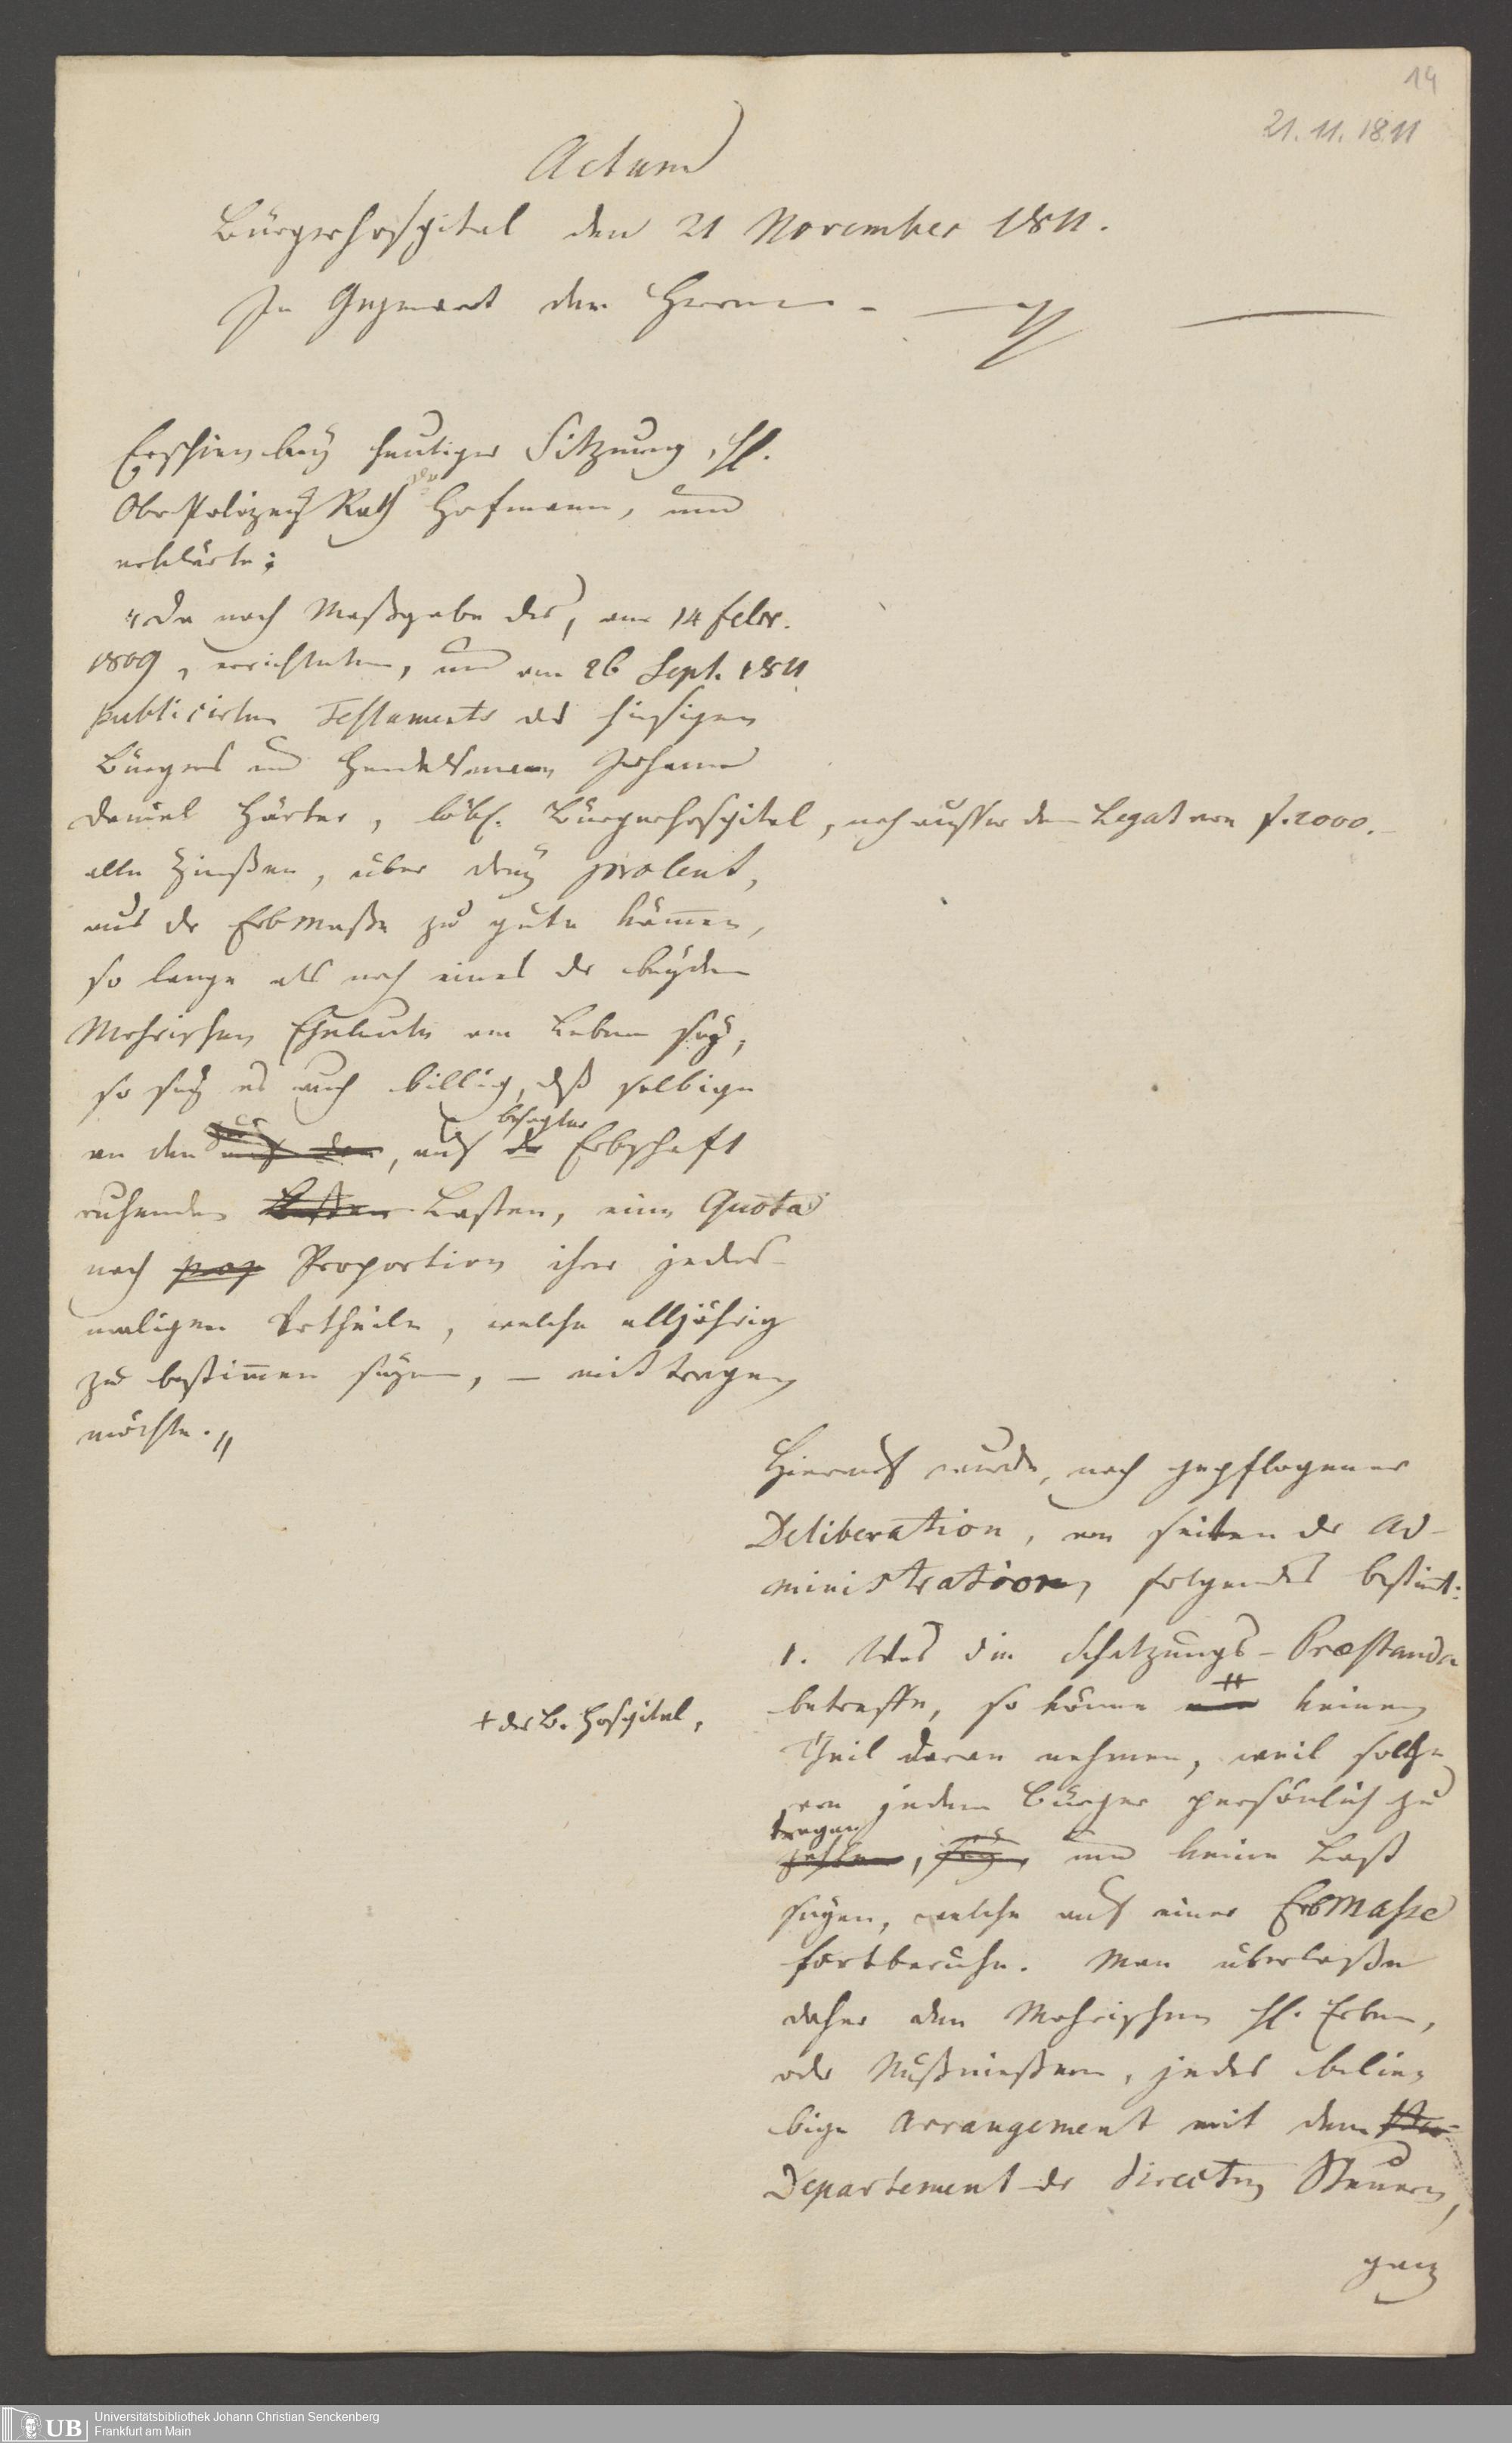 19
21.11.1811
Actum
Bürgerhospital den 21 November 1811.
In Gegenwart der Herren -
Erschien bey heutiger Sitzung, H.
Ober-Polizey Rath Hofmann, und
erklärte;
"Da nach Maßgabe des, am 14 febr.
1809, errichteten, und am 26 Sept. 1811
publicirten Testaments des hiesigen
Bürgers und Handelsmann Johann
Daniel Härter, löbl. Bürgerhospital, noch ausser dem Legat von f. 2000.-
alle Zinßen, über drey procent,
aus der Erbmaße zu gute kämen,
so lange als noch eines der beyden
Mohrischen Eheleute am Leben sey,
so sey es auch billig, daß selbige
an den auf der, auf besagter Erbschaft
ruhenden Lasten Lasten, eine Quota
nach prop Proportion ihrer jedes-
maligen Vortheile, welche alljährig
zu bestimen seyen, - mit tragen
möchte."
Hierauf wurde, nach gepflogener
Deliberation, von seiten der Ad-
ministration, folgendes bestimt:
1. Was die Schatzungs-Præstanda
+ das B. Hospital,
betreffe, so könne keinen
Theil daran nehmen, weil solche
von jedem Bürger persönlich zu
tragen
, seyen und keine Last
seyen, welche auf einer Erbmasse
fortberuhe. Man überlaße
daher den Mohrischen H. Erben,
oder Nutznießern, jedes belie-
bige Arrangement mit dem
Departement der directen Steuern,
ganz
UB Universitätsbibliothek Johann Christian Senckenberg
Frankfurt am Main